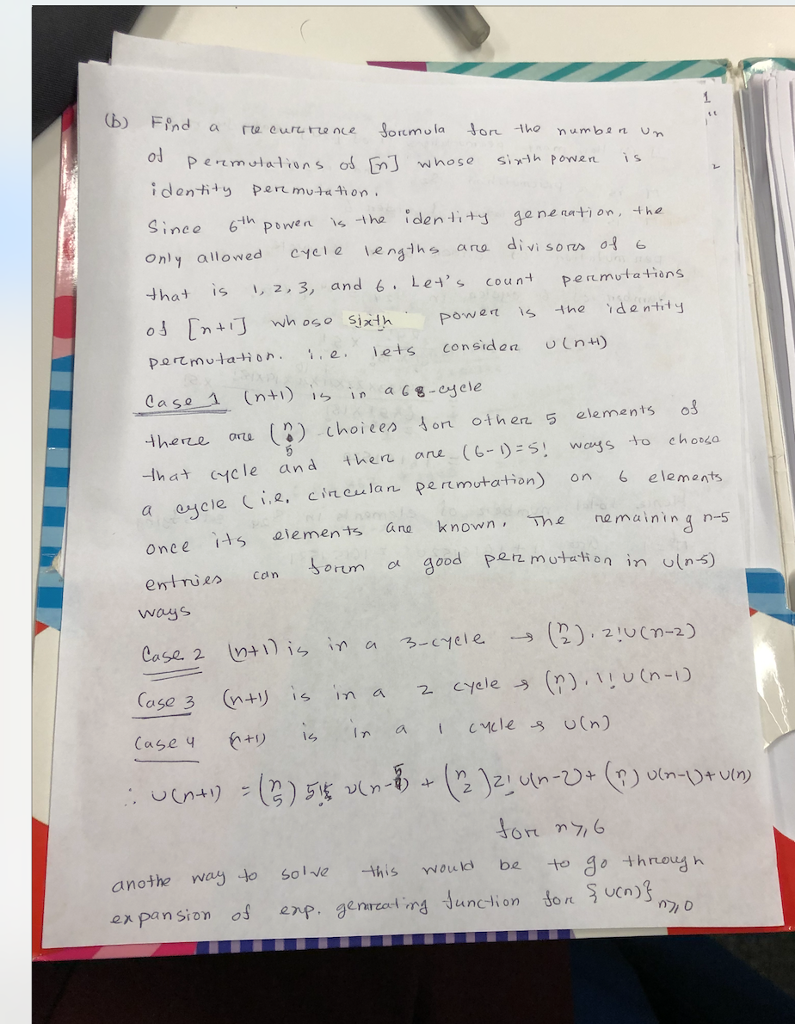 1
(b) Find a recurrence formula for the number un
of permutations of [n] whose sixth power is
identity permutation.
Since 6th power is the identity generation, the
only allowed cycle lengths are divisors of 6
that is 1, 2, 3, and 6. Let's count permutations
of [n+1] whose sixth power is the identity
permutation. i.e. lets consider U(n+1)
Case 1 (n+1) is in a 6-cycle
there are (n 5) choices for other 5 elements of
that cycle and then are (6-1)=5! ways to choose
a cycle (i.e. circular permutation) on 6 elements
once its elements are known. The remaining n-5
entries can form a good permutation in U(n-5)
ways
Case 2 (n+1) is in a 3-cycle → (n 2). 2!U(n-2)
Case 3 (n+1) is in a 2 cycle → (n 1). 1! U(n-1)
Case 4 (n+1) is in a 1 cycle → U(n)
∴ U(n+1) = (n 5) 5! U(n-5) + (n 2) 2! U(n-2) + (n 1) U(n-1) + U(n)
for n ≥ 6
anothe way to solve this would be to go through
expansion of exp. genreating function for {U(n)} n≥0